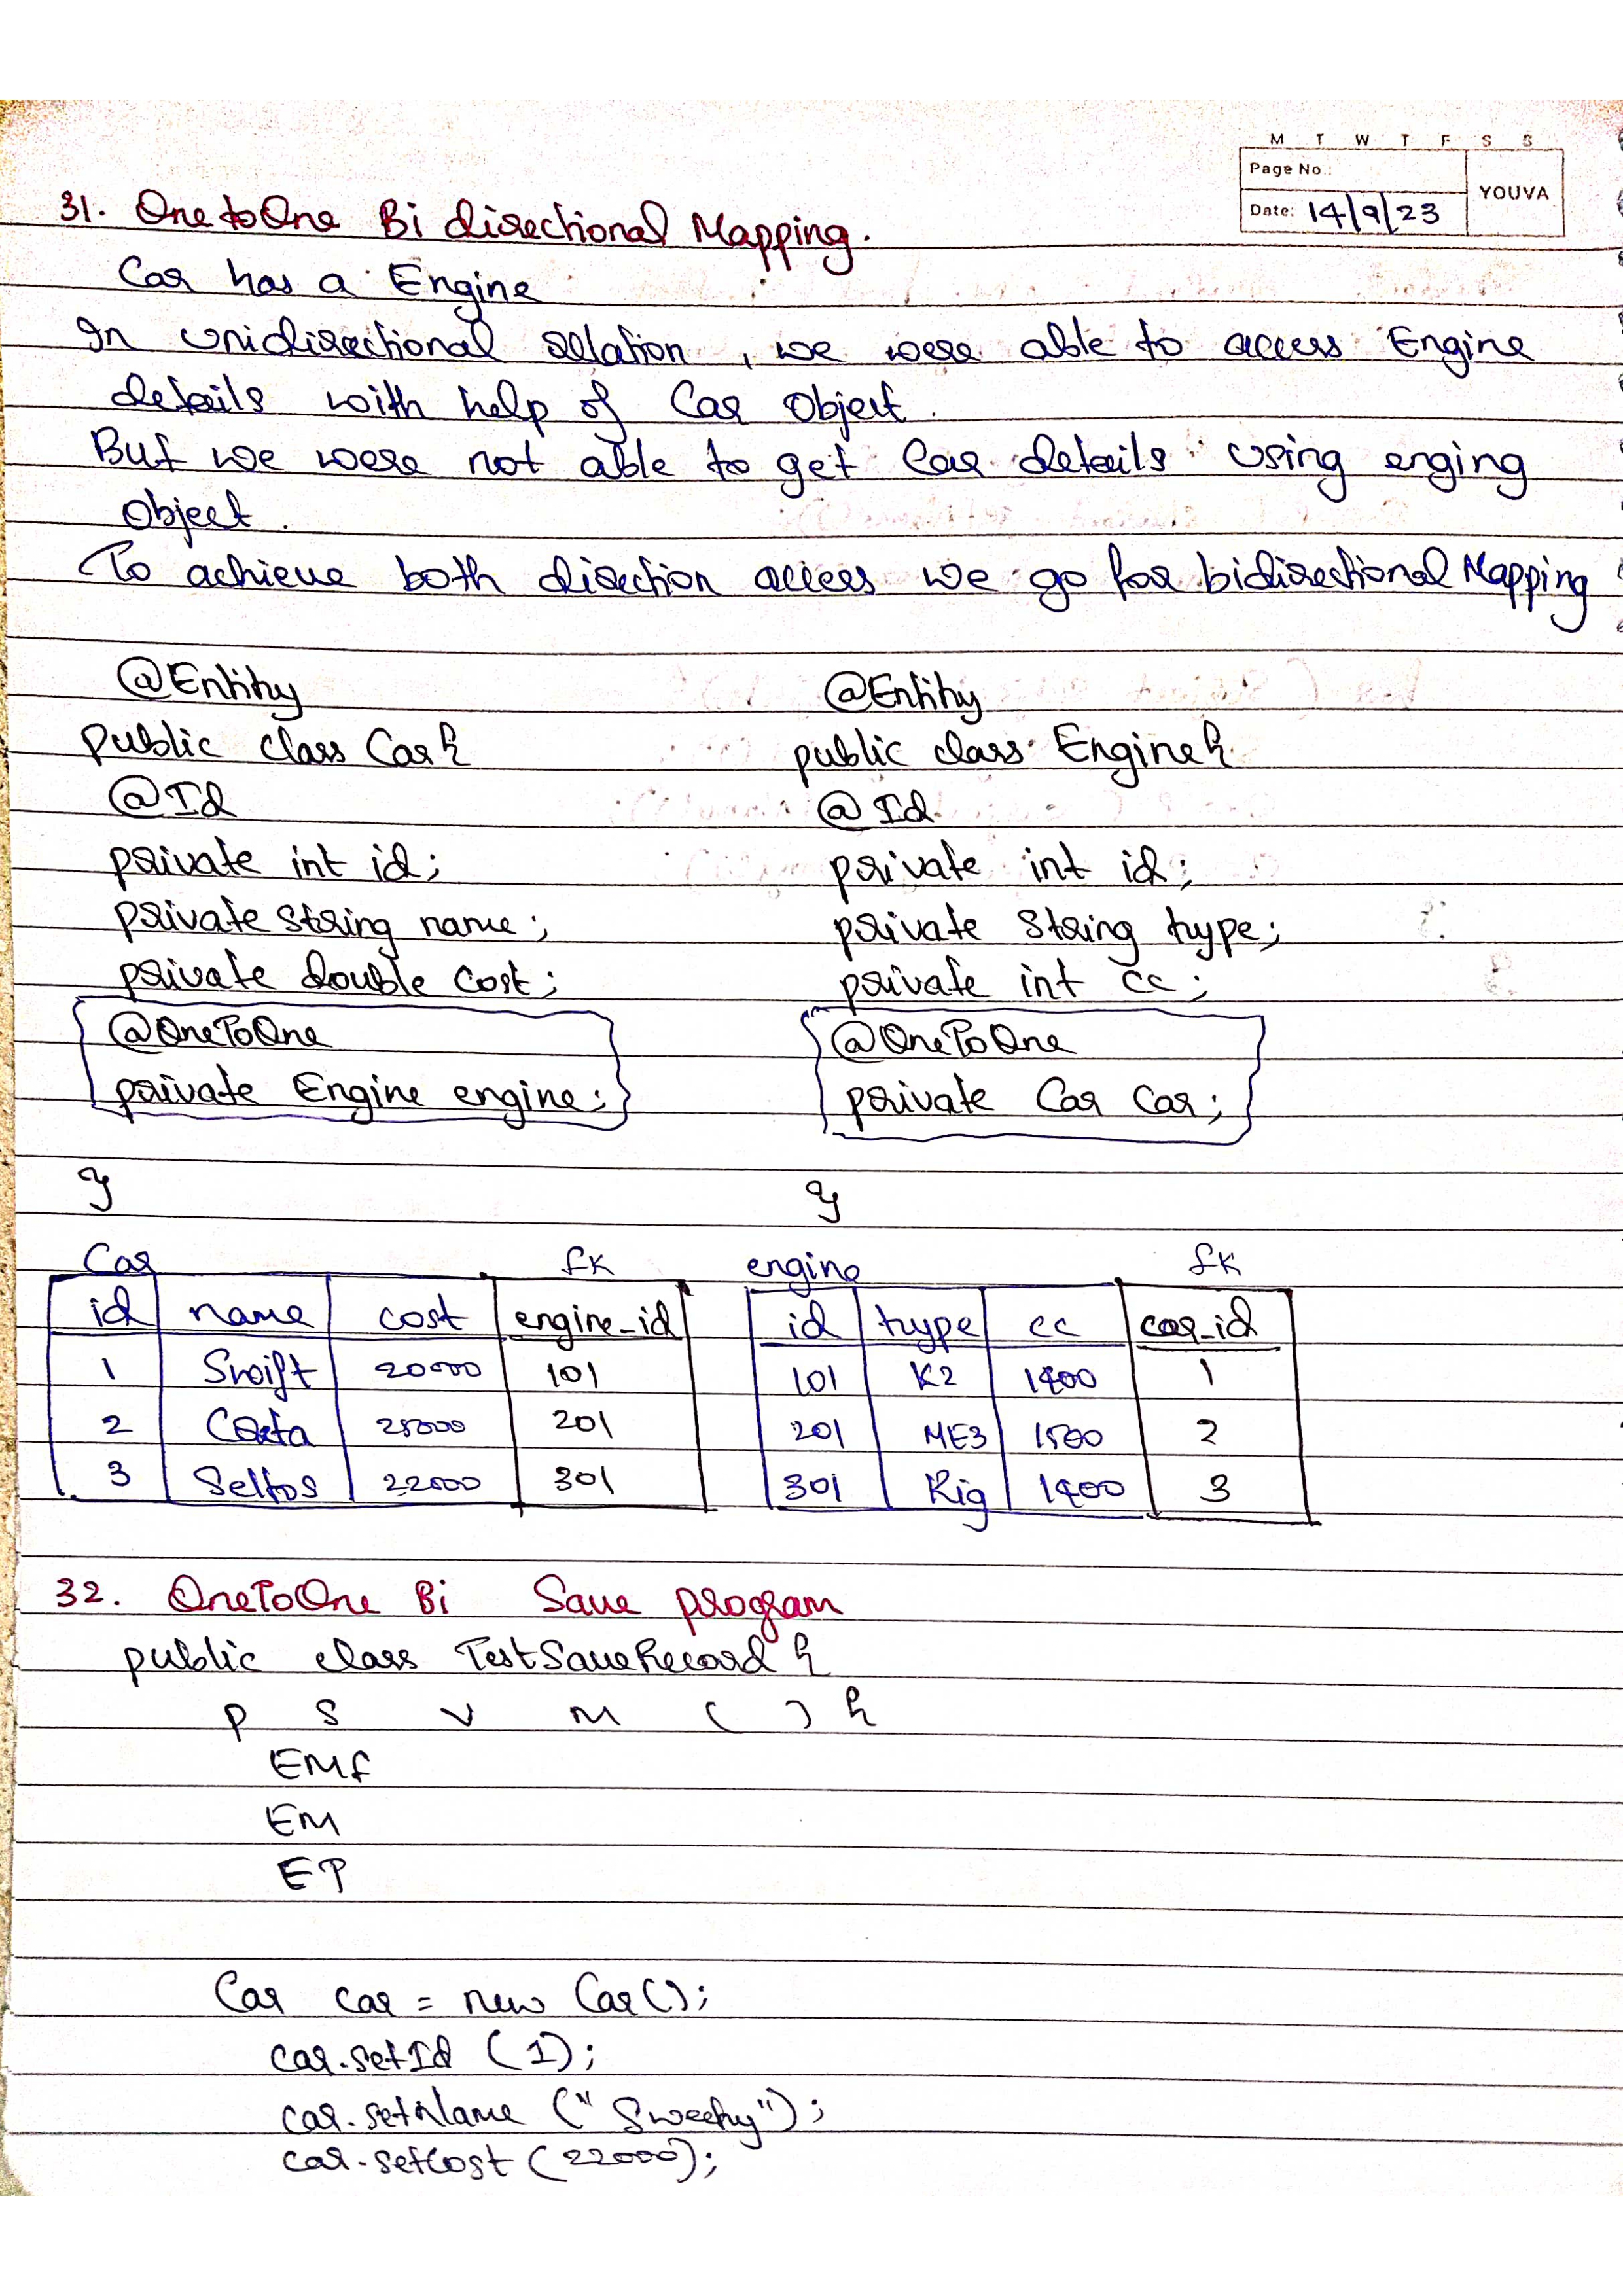 M T W T F S S
Page No.:
YOUVA
Date: 14/9/23
31. OnetoOne Bi directional Mapping.
Car has a Engine
In unidirectional relation, we were able to access Engine
details with help of Car Object.
But we were not able to get Car details using enging
object.
To achieve both direction access we go for bidirectional Mapping
@Entity
public class Car {
@Id
private int id;
private String name;
private double cost;
@OneToOne
private Engine engine;
}
@Entity
public class Engine {
@Id
private int id;
private String type;
private int cc;
@OneToOne
private Car car;
}
Car fk
id name cost engine_id
1 Swift 20000 101
2 Creta 25000 201
3 Seltos 22000 301
engine fk
id type cc car_id
101 K2 1400 1
201 ME3 1500 2
301 Rig 1400 3
32. OneToOne Bi Save program
public class TestSaveRecord {
p s v m ( ) {
EMF
EM
ET
Car car = new Car();
car.setId (1);
car.setName ("Sweety");
car.setCost (22000);